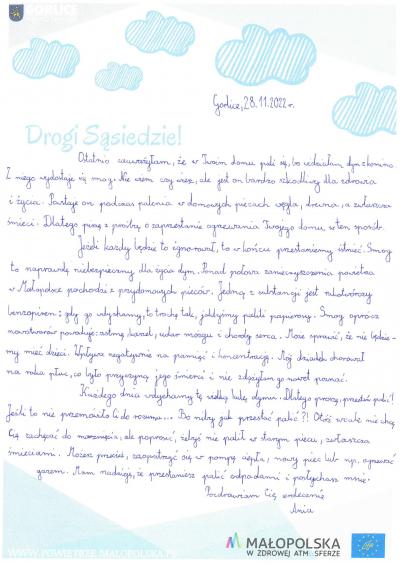 GORLICE
Gorlice, 28.11.2022 r.
Drogi Sąsiedzie!
Ostatnio zauważyłam, że w Twoim domu pali się, bo widziałam dym z komina.
Z niego wydostaje się smog. Nie wiem czy wiesz, ale jest on bardzo szkodliwy dla zdrowia
i życia. Powstaje on podczas palenia w domowych piecach węgla, drewna, a zwłaszcza
śmieci. Dlatego piszę z prośbą o zaprzestanie ogrzewania Twojego domu, w ten sposób.
Jeżeli każdy będzie to ignorował, to w końcu przestaniemy istnieć. Smog
to naprawdę niebezpieczny dla życia dym. Ponad połowa zanieczyszczenia powietrza
w Małopolsce pochodzi z przydomowych pieców. Jedną z substancji jest rakotwórczy
benzopiren: gdy go wdychamy, to trochę tak, jakbyśmy palili papierosy. Smog oprócz
nowotworów powoduje: astmę, kaszel, udar mózgu i choroby serca. Może sprawić, że nie będzie-
my mieć dzieci. Wpływa negatywnie na pamięć i koncentrację. Mój dziadek chorował
na raka płuc, co było przyczyną jego śmierci i nie zdążyłam go nawet poznać.
Każdego dnia wdychamy tę wielką kulę dymu. Dlatego proszę, przestań palić!
Jeśli to nie przemówiło Ci do rozumu... Bo niby jak przestać palić?! Otóż wcale nie chcę
Cię zachęcać do marznięcia, ale poprosić, żebyś nie palił w starym piecu, zwłaszcza
śmieciami. Możesz przecież, zaopatrzyć się w pompę ciepła, nowy piec lub np. ogrzewać
gazem. Mam nadzieję, że przestaniesz palić odpadami i posłuchasz mnie.
Pozdrawiam Cię serdecznie
Ania
WWW.POWIETRZE.MALOPOLSKA.PL
MAŁOPOLSKA
W ZDROWEJ ATMOSFERZE